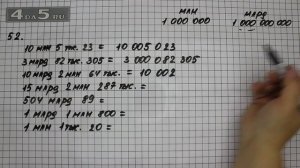 4DA5.RU
млн млрд
1 000 000 1 000 000 000
52.
10 млн 5 тыс. 23 = 10 005 023
3 млрд 82 тыс. 305 = 3 000 082 305
10 млрд 2 млн 64 тыс. = 10 002
15 млрд 2 млн 287 тыс. =
504 млрд 89 =
1 млрд 1 млн 800 =
1 млн 1 тыс. 20 =